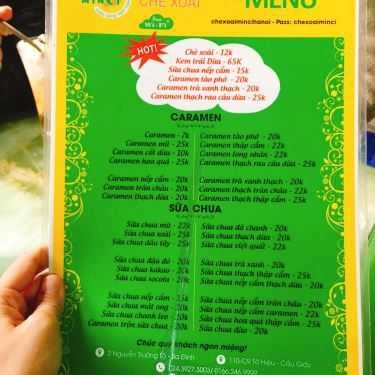 CHÈ XOÀI
MENU
Free
Wi-Fi
chexoaiminchanoi - Pass: chexoaiminci
HOT!
Chè xoài - 12k
Kem trái Dừa - 65K
Sữa chua nếp cẩm - 15k
Caramen tào phớ - 20k
Caramen trà xanh thạch - 20k
Caramen thạch rau câu dừa - 25k
CARAMEN
Caramen - 7k
Caramen mít - 25k
Caramen cốt dừa - 10k
Caramen hoa quả - 25k
Caramen tào phớ - 20k
Caramen thập cẩm - 22k
Caramen long nhãn - 22k
Caramen thạch rau câu dừa - 25k
Caramen nếp cẩm - 20k
Caramen trân châu - 20k
Caramen thạch dừa - 20k
Caramen trà xanh thạch - 20k
Caramen thạch trân châu - 22k
Caramen thạch thập cẩm - 22k
SỮA CHUA
Sữa chua mít - 22k
Sữa chua xoài - 25k
Sữa chua dâu tây - 25k
Sữa chua đá chanh - 20k
Sữa chua thạch dừa - 20k
Sữa chua việt quất - 22k
Sữa chua đậu đỏ - 20k
Sữa chua kakao - 20k
Sữa chua socola - 20k
Sữa chua trà xanh - 20k
Sữa chua thạch thập cẩm - 25k
Sữa chua nếp cẩm - 15k
Sữa chua mật ong - 20k
Sữa chua chanh leo - 20k
Caramen trộn sữa chua - 20k
Sữa chua trân châu - 20k
Sữa chua nếp cẩm caramen - 22k
Sữa chua hoa quả thập cẩm - 25k
Sữa chua đào - 20k
Chúc quý khách ngon miệng!
2 Nguyễn Trường Tộ - Ba Đình
110-C9 Tô Hiệu - Cầu Giấy